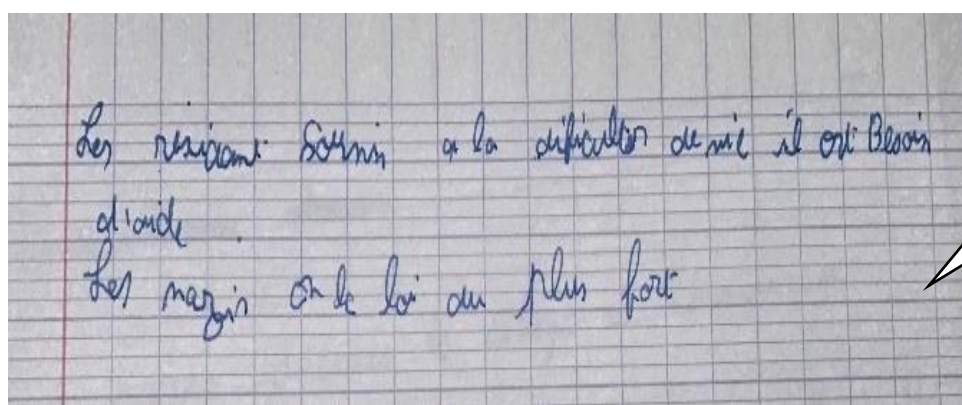 Les résidant Soumis a la dificulter de vie il ont Besoin
d'aide .
Les nazis on le loi du plus fort